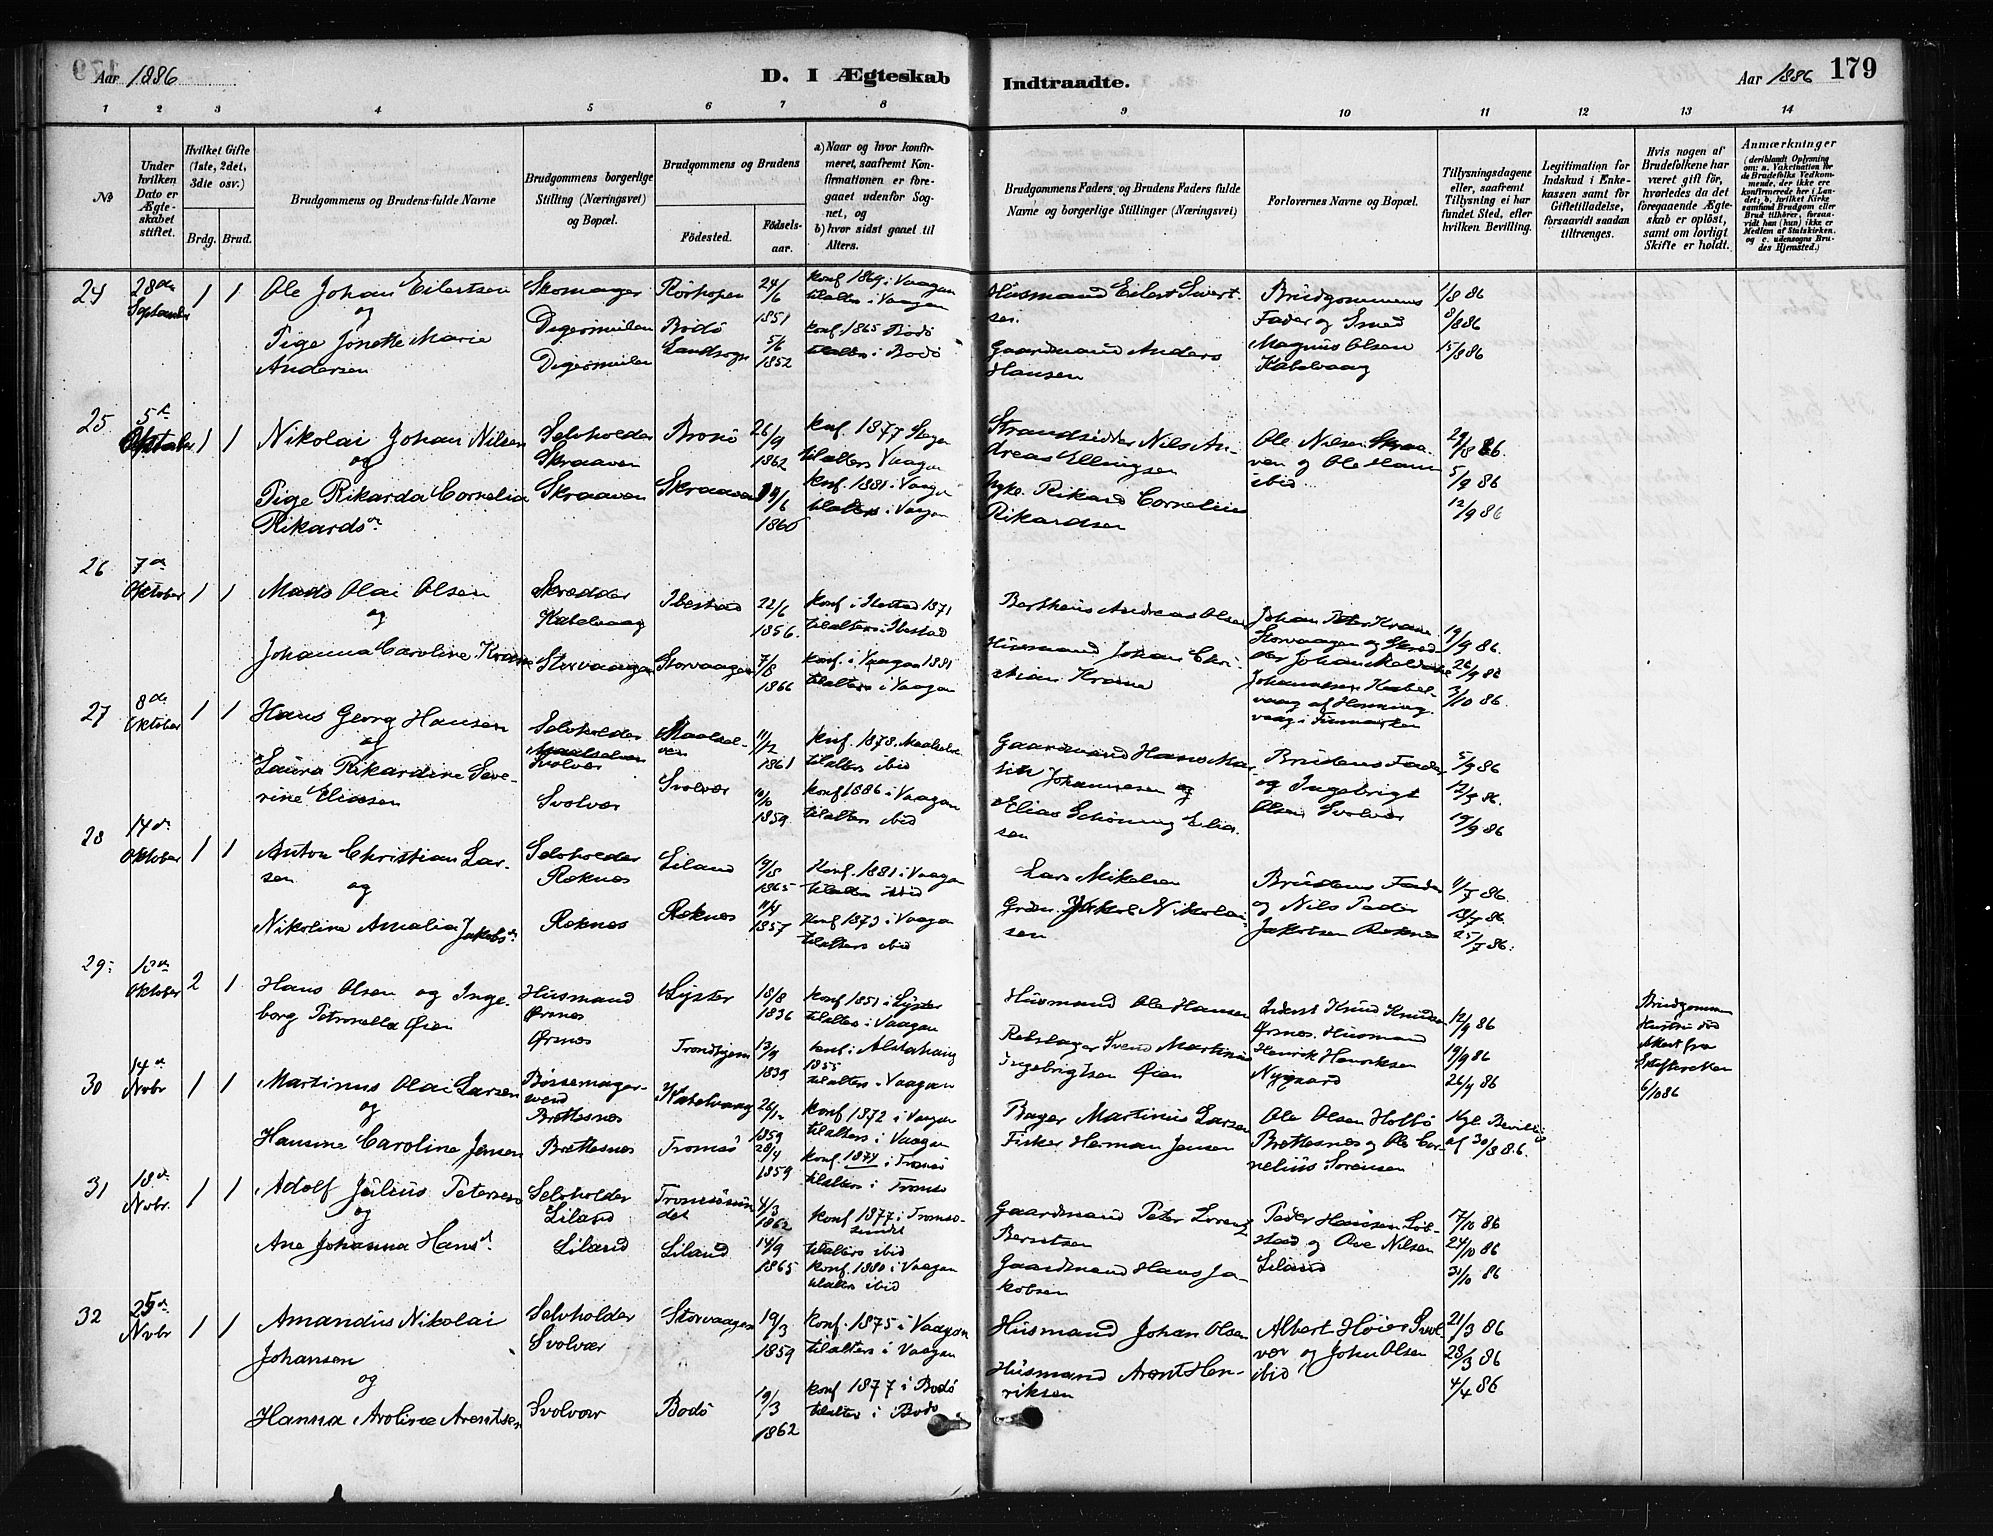 Aar 1886
D. I Ægteskab
Indtraadte.
Aar 1886
179
1 2 3 4 5 6 7 8 9 10 11 12 13 14
No
Under hvilken Dato er Ægteskabet stiftet.
Hvilket Gifte (1ste, 2det, 3die osv.)
Brdg. Brud.
Brudgommens og Brudens fulde Navne
Brudgommens borgerlige Stilling (Næringsvei) og Bopæl.
Brudgommens og Brudens
Fødested.
Fødselsaar.
a) Naar og hvor konfirmeret, saafremt Konfirmationen er foregaaet udenfor Sognet, og
b) hvor sidst gaaet til Alters.
Brudgommens Faders, og Brudens Faders fulde Navne og borgerlige Stillinger (Næringsvei)
Forlovernes Navne og Bopæl.
Tillysningsdagene eller, saafremt Tillysning ei har fundet Sted, efter hvilken Bevilling.
Legitimation for Indskud i Enkekassen samt for Giftetilladelse, forsaavidt saadan tiltrænges.
Hvis nogen af Brudefolkene har været gift før, hvorledes da det foregaaende Ægteskab er opløst, samt om lovligt Skifte er holdt.
Anmærkninger
24
28de September
1 1
Ole Johan Eilertsen
og
Pige Jonette Marie
Andersen
Skomager
Digermulen
Digermulen
Rørhopen
Bodø
Landsogn
24/6
1851
5/6
1852
konf 1869 i Vaagan
tilalters i Vaagan
konf. 1865 Bodø
tilalters i Bodø
Husmand Eilert Sivertsen.
Gaardmand Anders
Hansen
Brudgommens
Fader og Smed
Magnus Olsen
Kabelvaag
1/8 86
8/8 86
15/8 86
25
5te
Oktober
1 1
Nikolai Johan Nilsen
og
Pige Rikarda Cornelia
Rikardsdr
Selvholder
Skraaven
Skraaven
Skraaven
26/9
1862
konf. 1877 Stegen
tilalters Vaagan
konf. 1881 i Vaagan
tilalters i Vaagan
Strandsidder Nils Andreas Ellingsen
Rikard Cornelius
Rikardsen
Ole Nilsen Skraaven og Ole Ham
ibid
29/8 86.
5/9 86
12/9 86
26
7de
Oktober
1 1
Mads Olai Olsen
og
Johanna Caroline Krane
Skrædder
Kabelvaag
Storvaagen
Ibestad
Storvaagen
22/6
1856.
7/8
1866
konf i Ibestad 1871
tilalters i Ibestad
konf. i Vaagan 1881
tilalters i Vaagan
Bertheus Andreas Olsen
Husmand Johan Christian Krane
Johan Peter Krane
Storvaagen og Skrædder Johan
Johannesen Kabelvaag af Honningsvaag i Finmarken
19/9 86.
26/9 86
3/10 86
27
8de
Oktober
1 1
Hans Georg Hansen
og
Laura Rikardine Severine Eliasen
Selvholder
Svolvær
Svolvær
Maalselven
Svolvær
11/12
1861
10/10
1859
konf. 1878. Maalselv
tilalters ibid
konf 1886 i Vaagan
tilalters ibid
Gaardmand Hans
Johannesen og
Elias Schøning Eliasen
Brudens Fader
og Ingebrigt
Olsen Svolvær
5/9 86
12/9 86.
19/9 86
28
14de
Oktober
1 1
Anton Christian Larsen
og
Nikoline Amalia Jakobsdr
Selvholder
Røknes
Røknes
Liland
Røknes
1865
11/4
1857
Konf. 1881 i Vaagan
tilalters ibid
konf 1873 i Vaagan
tilalters ibid
Lars Mikelsen
Jakob Nikolaisen
Brudens Fader
og Nils Peder
Jakobsen Røknes
11/7 86.
18/7 86
25/7 86.
29
Oktober
2 1
Hans Olsen og Ingeborg Petronella Øien
Husmand
Ørsnes
Ørsnes
Lyster
Trondhjem
18/8
1836
13/9
1839
konf 1851 i Lyster
tilalters i Vaagan
konf. i Alstahaug
1855
tilalters i Vaagan
Husmand Ole Hansen
Rebslager Svend Martinus
Ingebrigtsen Øien
Inderst Knud Knudsen
Ørsnes. Husmand
Henrik Henriksen
Nygaard
12/9 86
19/9 86
26/9 86
Brudgommens
Hustru død
Attest fra
Skifteretten
6/10 86
30
14de
Novbr
1 1
Martinus Olai Larsen
og
Hansine Caroline Jensen
Bøssemagersvend
Brettesnes
Brettesnes
Kabelvaag
Tromsø
1859
28/4
1859
konf 1872 i Vaagan
tilalters i Vaagan
konf. 1874 i Tromsø
tilalters i Tromsø
Bager Martinus Larsen
Fisker Herman Jensen
Ole Olsen Holbø
Brettesnes og Ole Cornelius Sørensen
Kgl. Bevilling
af 30/8 86.
31
18de
Novbr.
1 1
Adolf Julius Petersen
og
Ane Johanna Hansdr
Selvholder
Liland
Liland
Tromsøsundet
Liland
4/3
1862
14/9
1865
konf 1877 i Tromsøsundet
tilalters ibid
konf. 1880 i Vaagan
tilalters ibid
Gaardmand Peter Lorentz
Berntsen
Gaardmand Hans Jakobsen
Peder Hansen
og Ove Nilsen
Liland
17/10 86
24/10 86
31/10 86
32
25de
Novbr
1 1
Amandus Nikolai
Johansen
og
Hanna Aroline Arentsen
Selvholder
Svolvær
Svolvær
Storvaagen
Bodø
19/3
1859
19/3
1862
konf. 1875 i Vaagan
tilalters i Vaagan
konf 1877 i Bodø
tilalters i Bodø
Husmand Johan Olsen
Husmand Arent Henriksen
Albert Høier Svolvær og John Olsen
ibid
21/3 86
28/3 86
4/4 86